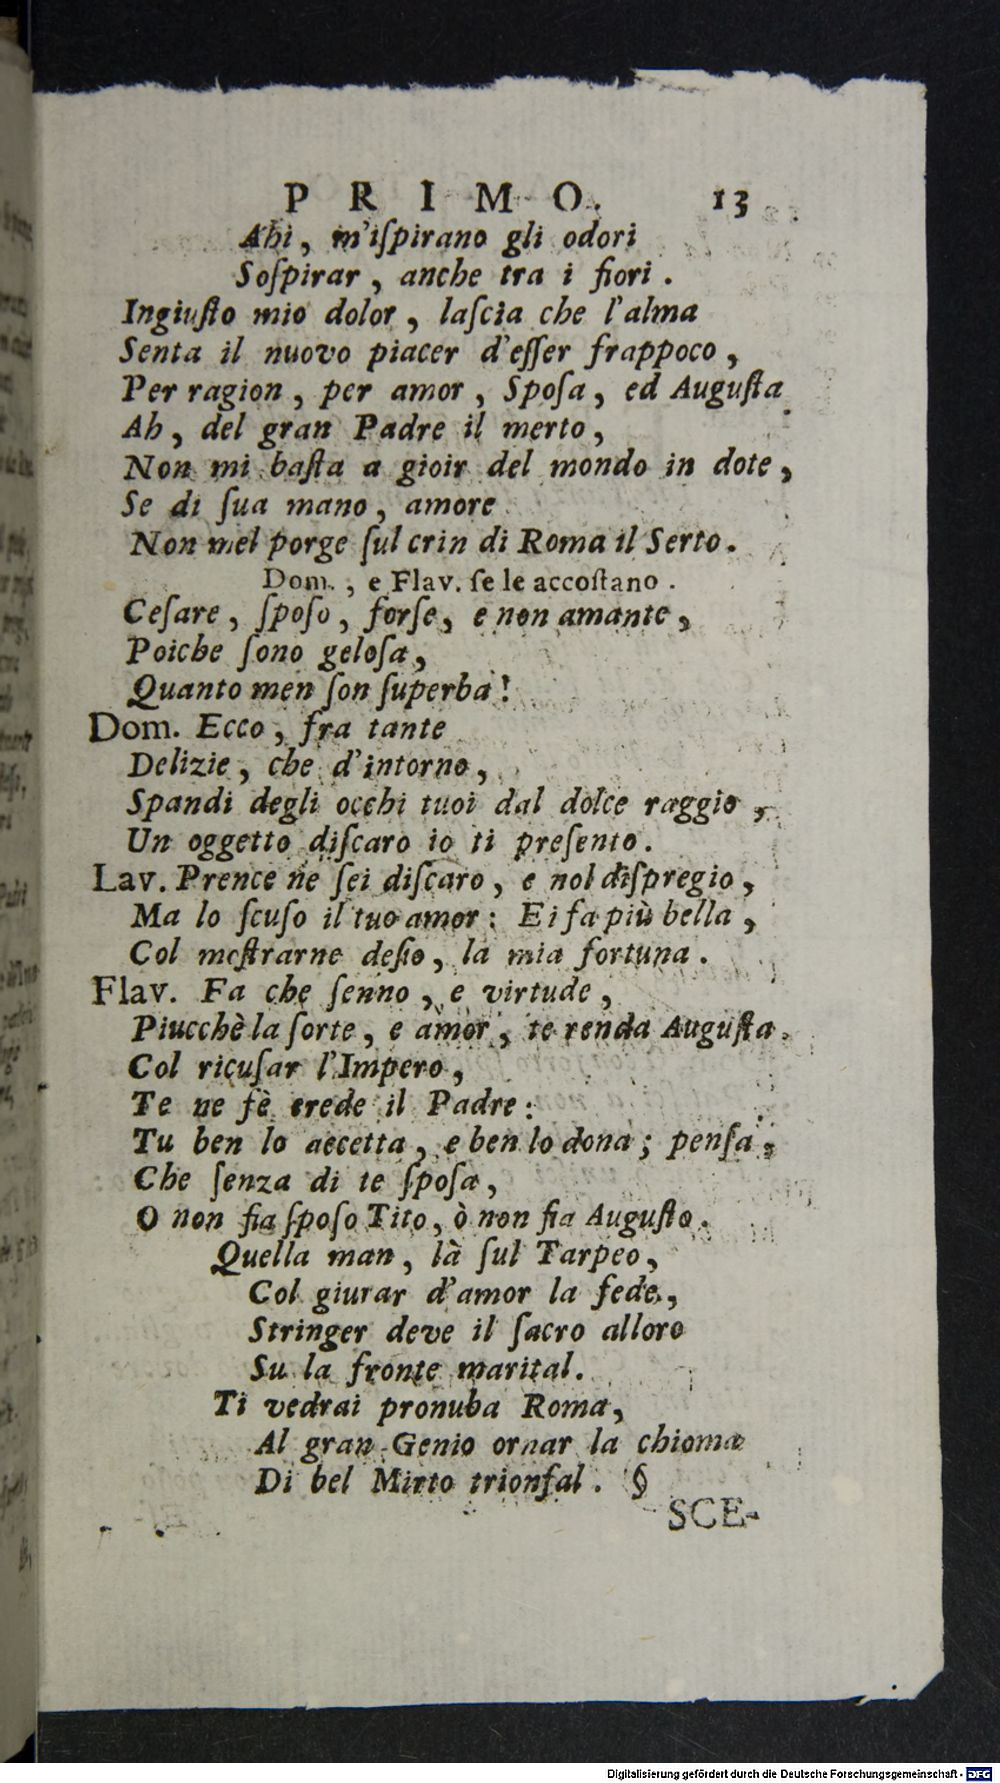 PRIMO. 13
Ahi, m'iſpirano gli odori
Soſpirar, anche tra i fiori.
Ingiuſto mio dolor, laſcia che l'alma
Senta il nuovo piacer d'eſſer frappoco,
Per ragion, per amor, Spoſa, ed Auguſta.
Ah, del gran Padre il merto,
Non mi baſta a gioir del mondo in dote,
Se di ſua mano, amore
Non mel porge ſul crin di Roma il Serto.
Dom., e Flav. ſe le accoſtano.
Ceſare, ſpoſo, forſe, e non amante,
Poiche ſono geloſa,
Quanto men ſon ſuperba!
Dom. Ecco, fra tante
Delizie, che d'intorno,
Spandi degli occhi tuoi dal dolce raggio,
Un oggetto diſcaro io ti preſento.
Lav. Prence ne ſei diſcaro, e nol diſpregio,
Ma lo ſcuſo il tuo amor: Ei fa più bella,
Col moſtrarne deſio, la mia fortuna.
Flav. Fa che ſenno, e virtude,
Piucchè la ſorte, e amor, te renda Auguſta.
Col ricuſar l'Impero,
Te ne fè erede il Padre:
Tu ben lo accetta, e ben lo dona; penſa,
Che ſenza di te ſpoſa,
O non fia ſpoſo Tito, ò non fia Auguſto.
Quella man, là ſul Tarpeo,
Col giurar d'amor la fede,
Stringer deve il ſacro alloro
Su la fronte marital.
Ti vedrai pronuba Roma,
Al gran Genio ornar la chioma
Di bel Mirto trionfal. §
SCE-
Digitalisierung gefördert durch die Deutsche Forschungsgemeinschaft - DFG